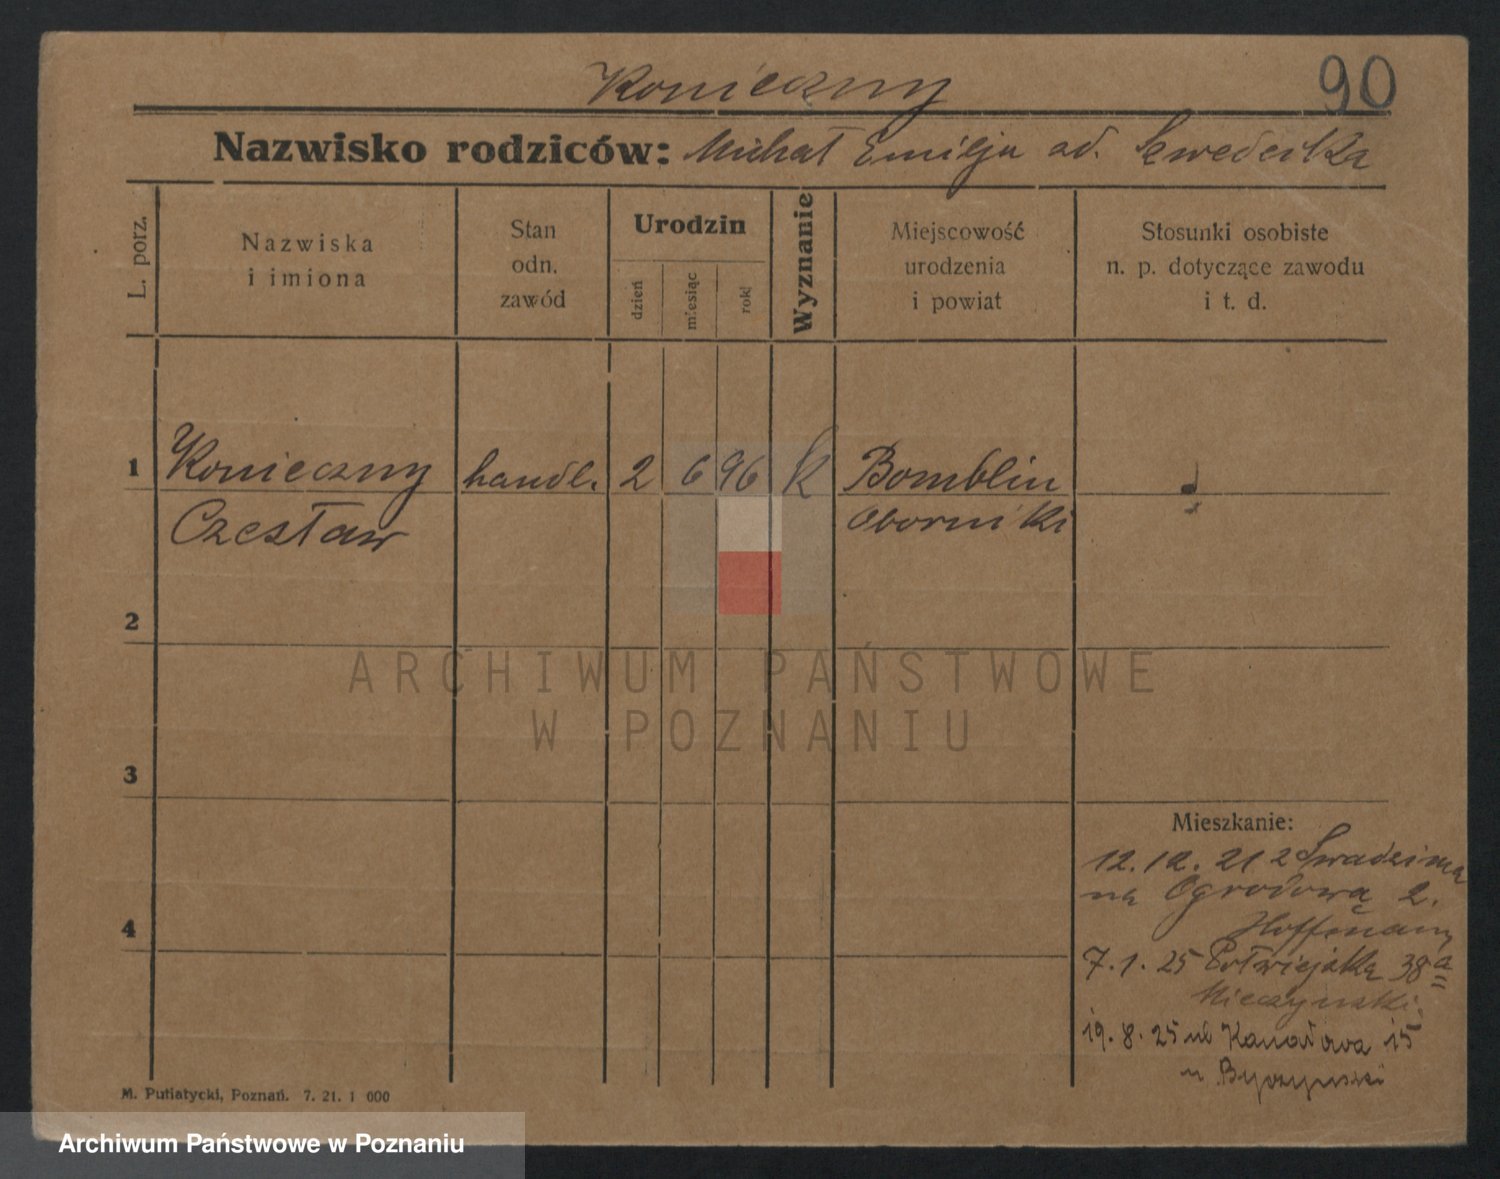 Konieczny
90
Nazwisko rodziców: Michał Emilja od. Szwederska
L. porz.
Nazwiska
i imiona
Stan
odn.
zawód
Urodzin
dzień
miesiąc
rok
Wyznanie
Miejscowość
urodzenia
i powiat
Stosunki osobiste
n. p. dotyczące zawodu
i t. d.
1 Konieczny handl. 2 6 96 k Bomblin
Czesław Oborniki
2
3
4
Mieszkanie:
12. 12. 21 z Swadzima
na Ogrodową 2.
Hoffmann
7. 1. 25 Półwiejska 38a
Mieczyński.
19. 8. 25 ul Kanałowa 15
u Byczyński
M. Putiatycki, Poznań. 7. 21. 1 000
ARCHIWUM PAŃSTWOWE
W POZNANIU
Archiwum Państwowe w Poznaniu